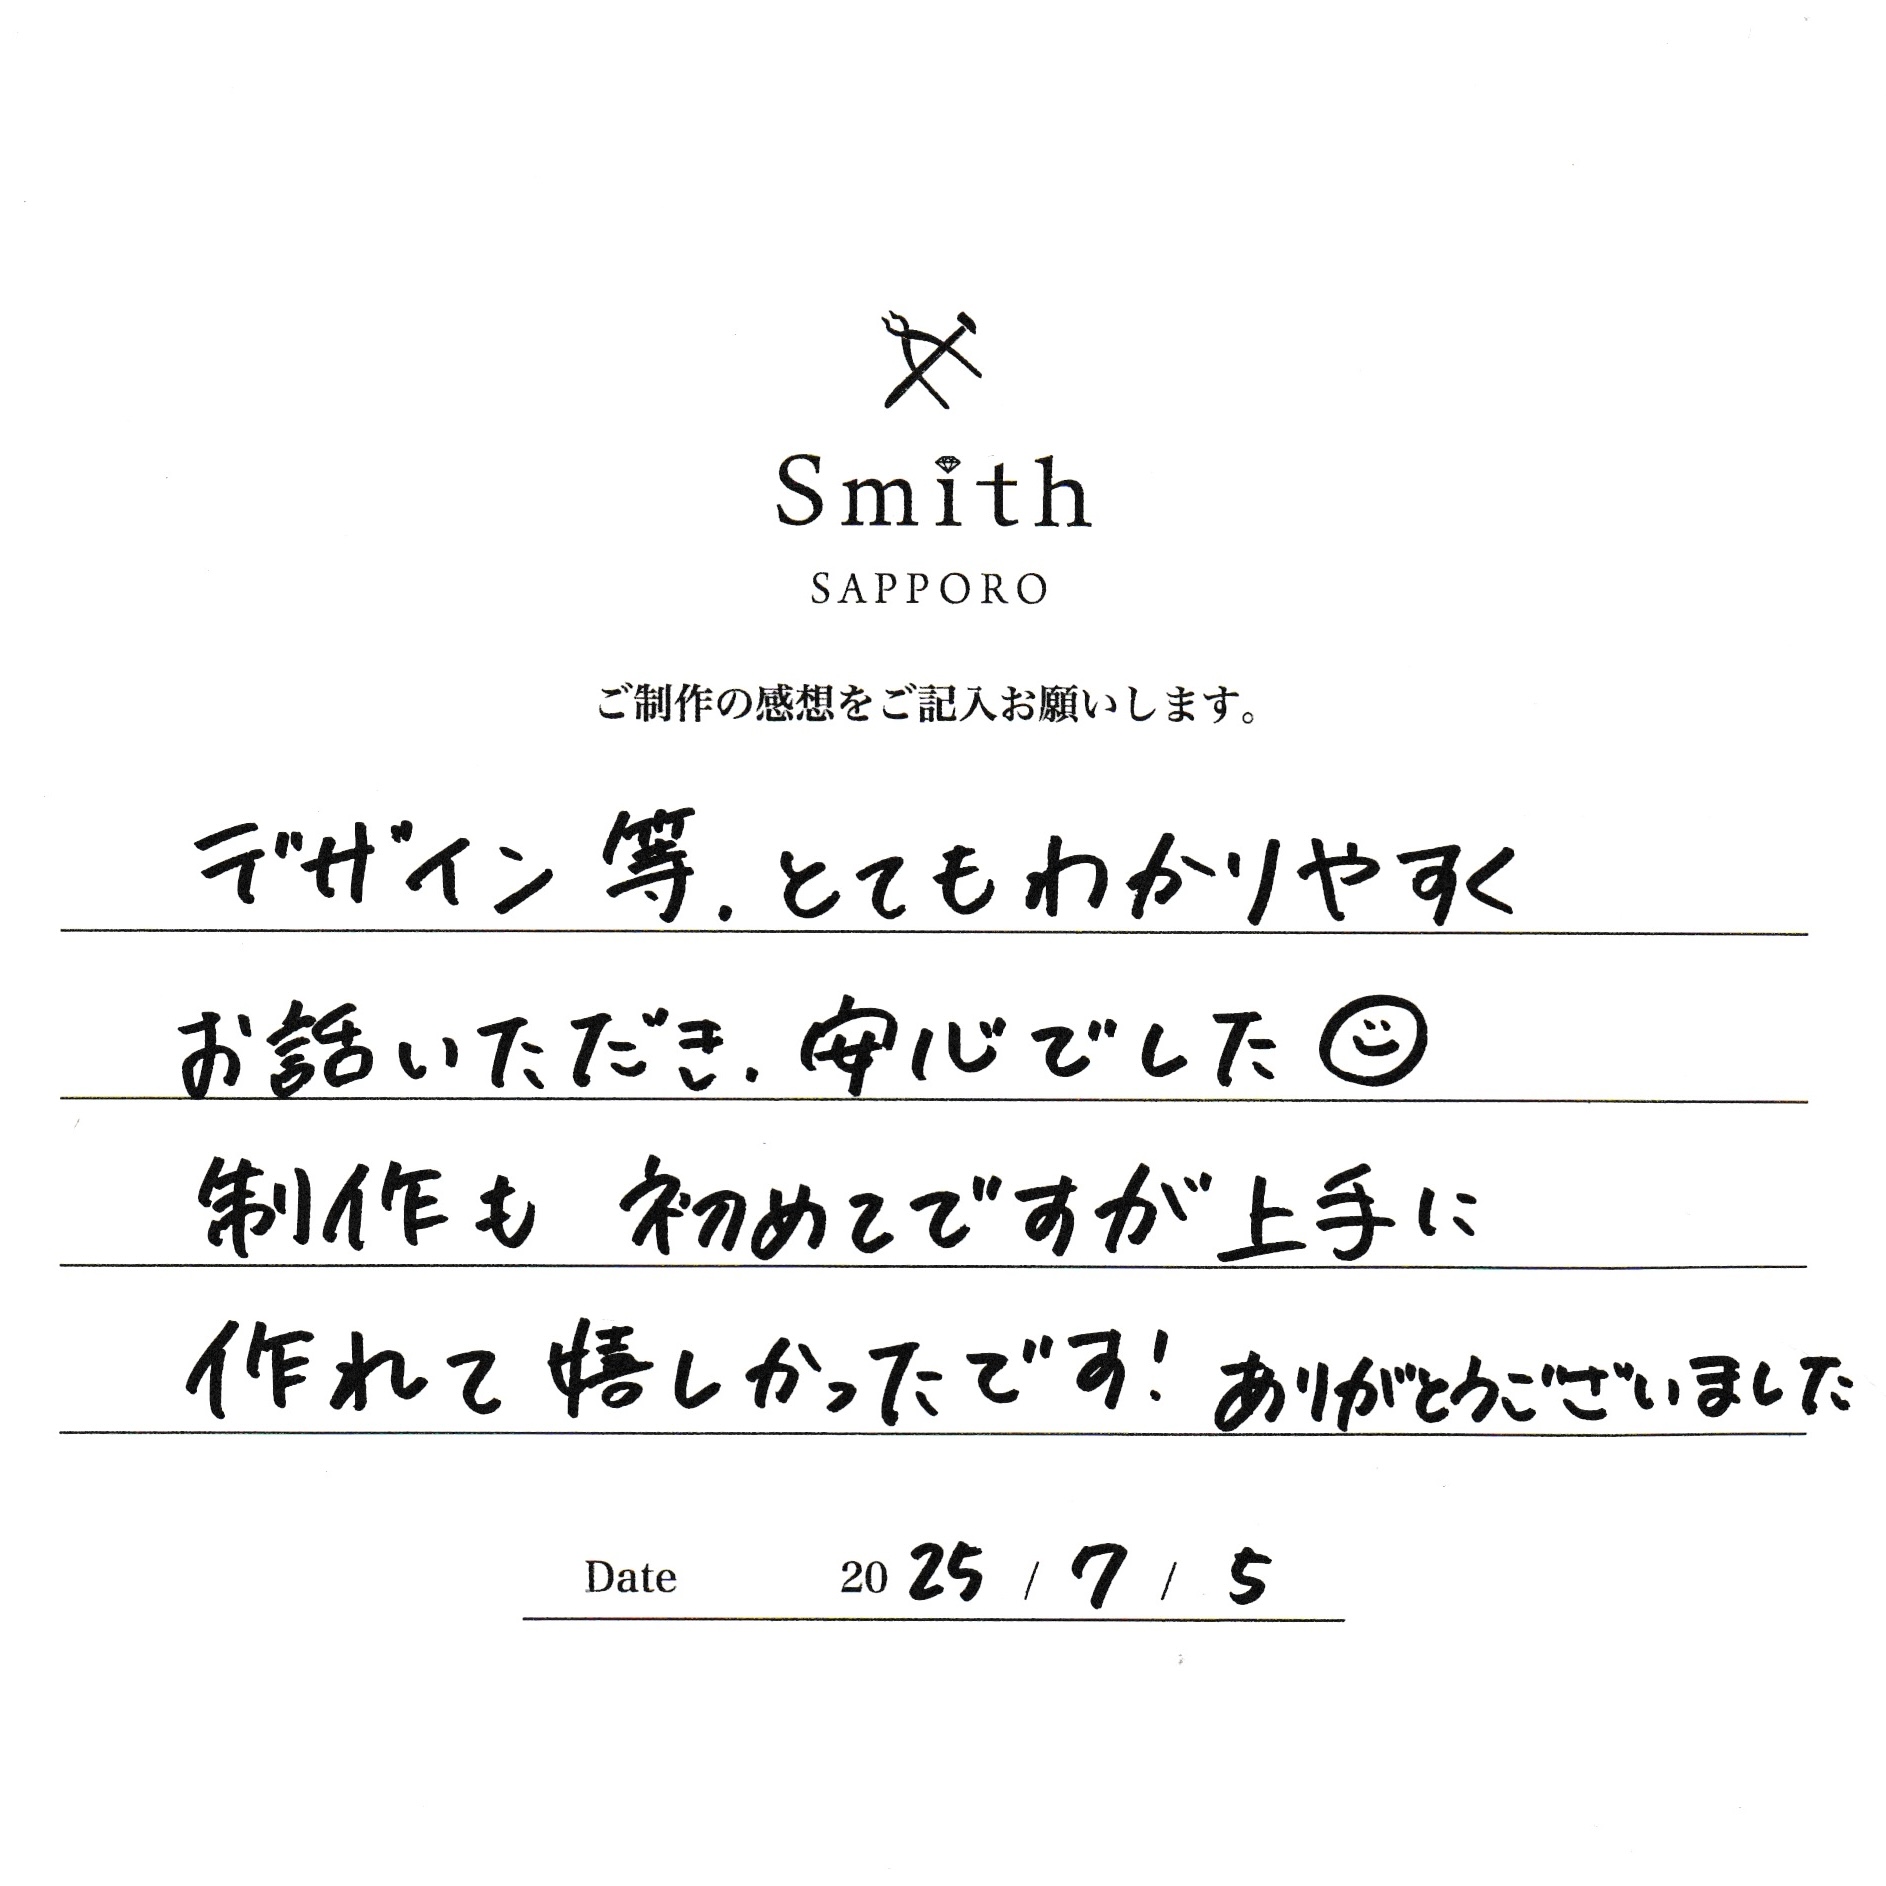 Smith
SAPPORO
ご制作の感想をご記入お願いします。
デザイン等、とてもわかりやすく
お話いただき、安心でした
制作も 初めてですが上手に
作れて嬉しかったです! ありがとうございました
Date 2025 / 7 / 5